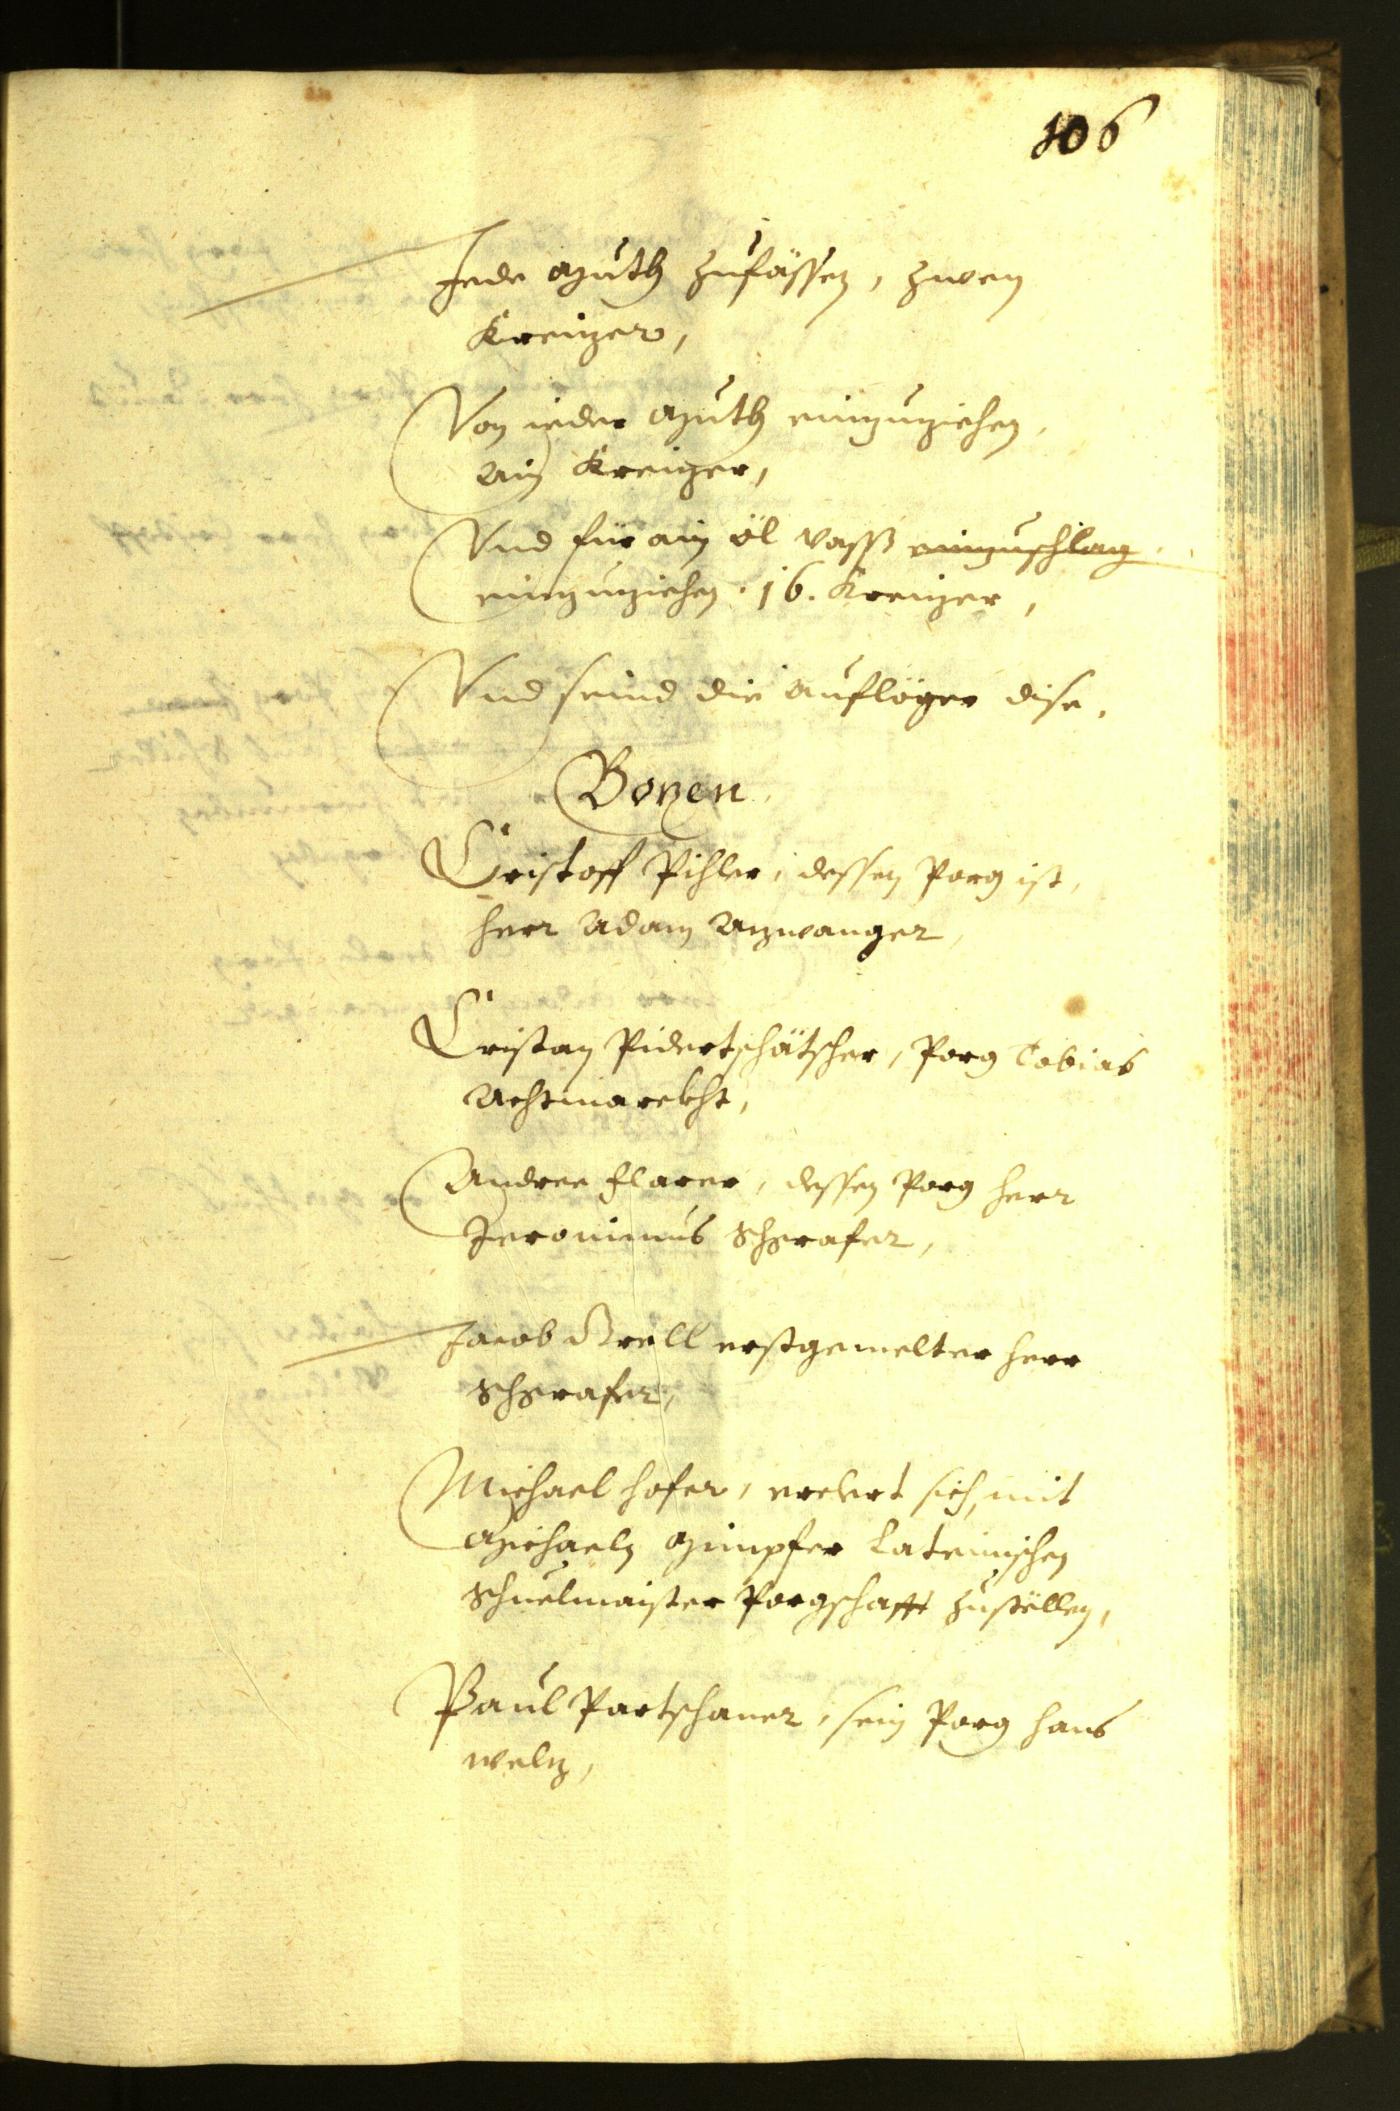 106
Jede Muth zufässen, zwen
Kreuzer,
Von ieder Muth einzuziehen,
ain Kreizer,
Vnd für ain öl vass einzuschlag
einzuziehen .16. Kreizer,
Vnd seind die Auflöger dise,
Bozen
Cristoff Pihler, dessen Porg ist,
herr Adam Azwanger
Cristan Pidertschätscher, Porg Tobias
Achtmarckht,
Andree flarer, dessen Porg herr
Jeronimus Schgrafer,
Jacob Krell erstgemelter herr
Schgrafer,
Michael hofer, erclert sich, mit
Michaeln Gimpfer Lateinischen
Schuelmaister Porgschafft zustellen,
Paul Partschaner, sein Porg hans
welz,